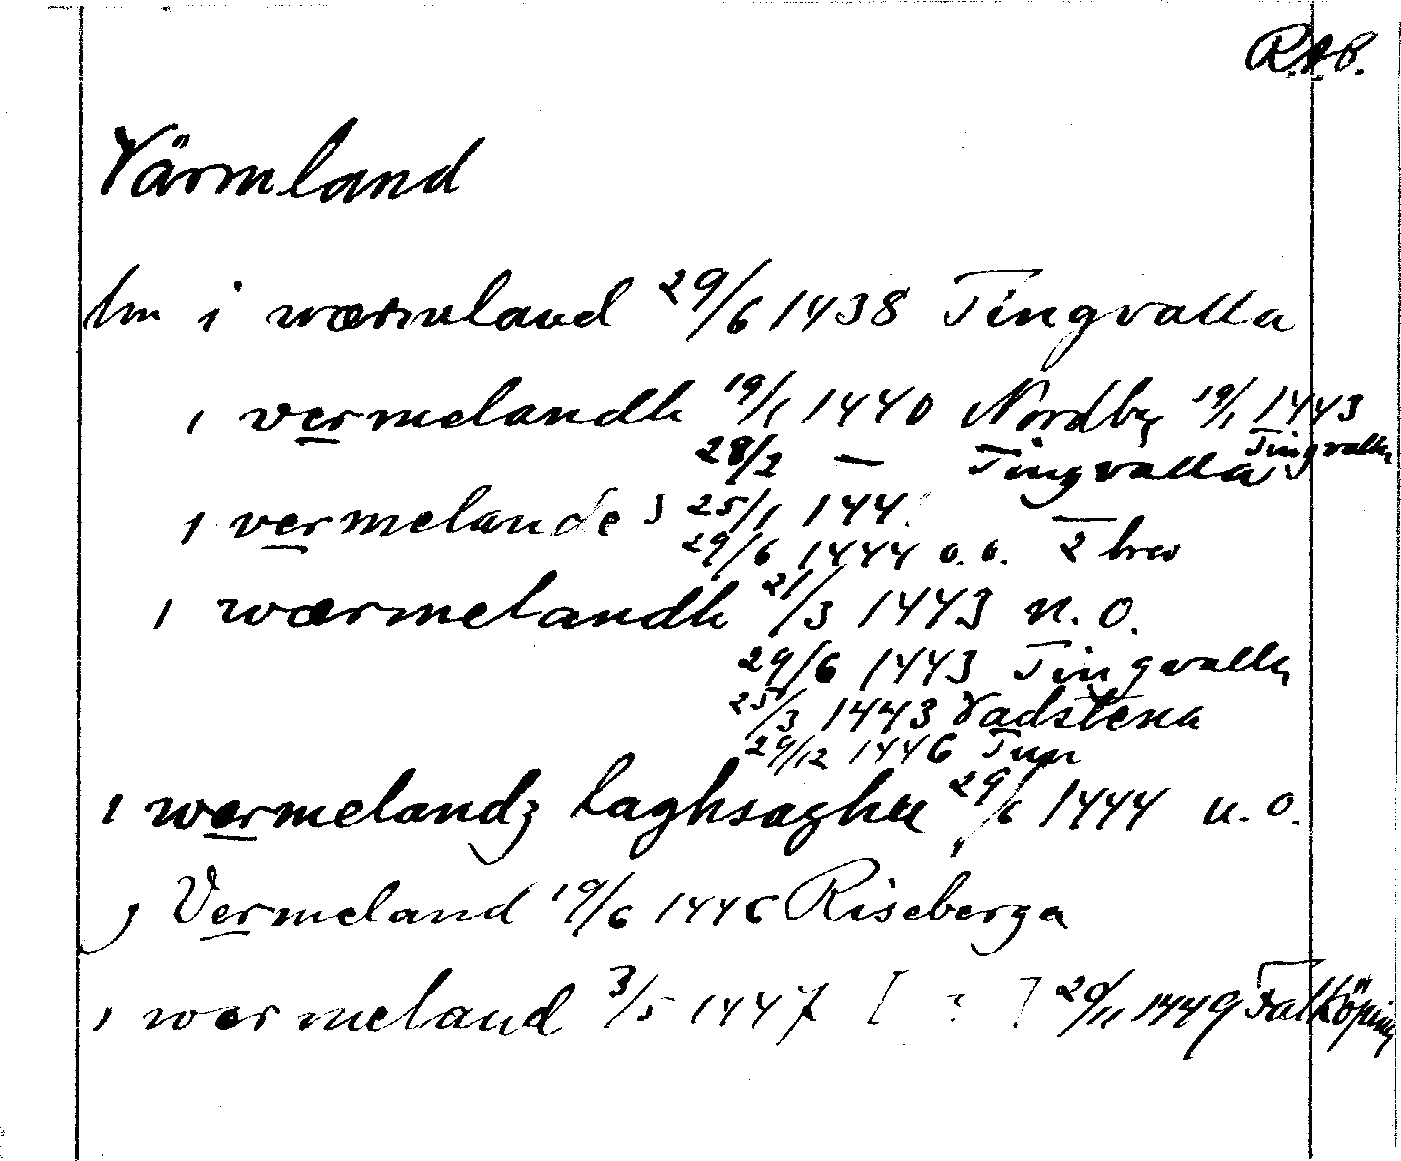 R.A.P.
Värmland
hm i wærmeland 29/6 1438 Tingvalla
i vermelandh 19/1 1440 Nordby 19/1 1443
28/2 — Tingvalla Tingvalla
i vermelande 25/1 144
29/6 1444 o.o. 2 brev
i wærmelandh 21/3 1443 n.o.
29/6 1443 Tingvalla
25/3 1443 Vadstena
29/12 1446 Tun
i wermelandz laghsaghu 29/6 1444 u.o.
j Vermeland 19/6 1446 Riseberga
i wermeland 3/5 1447 [ ? ] 29/11 1449 Falköping